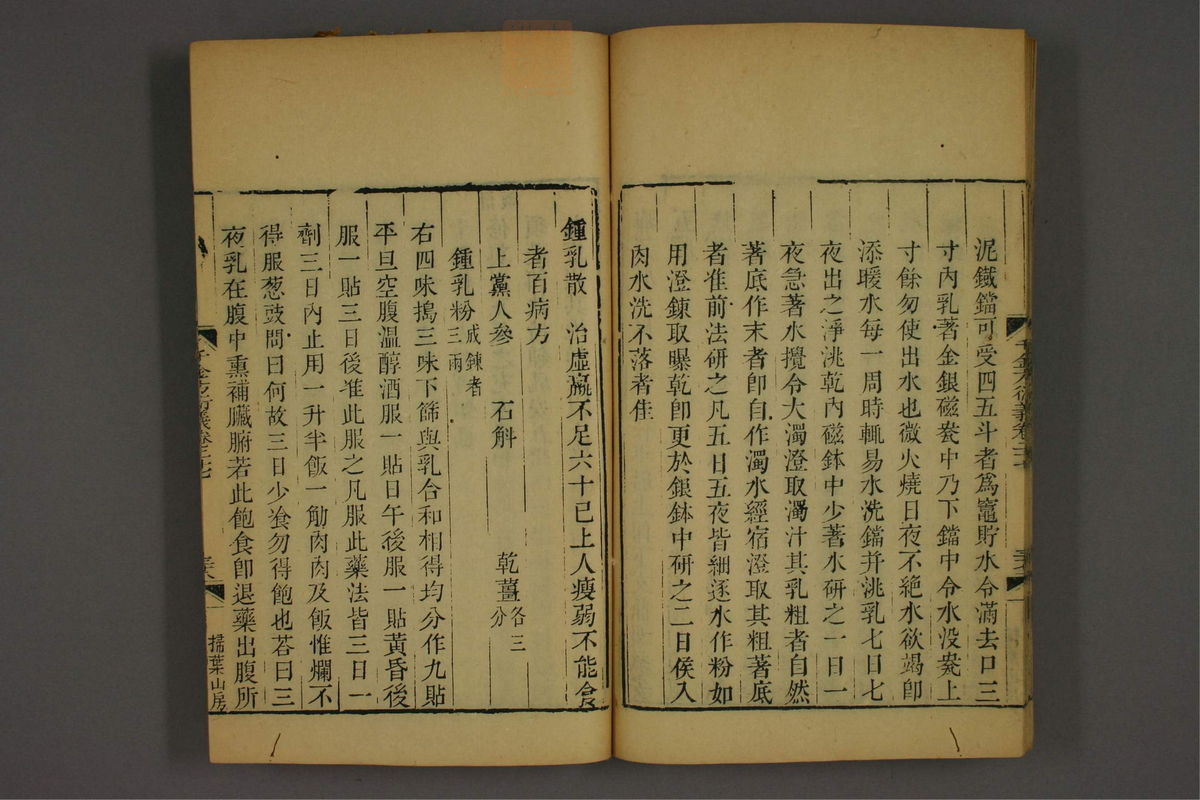 泥鐵鐺可受四五斗者爲竈貯水令滿去口三
寸內乳著金銀磁瓷中乃下鐺中令水没瓷上
寸餘勿使出水也微火燒日夜不絕水欲竭卽
添暖水每一周時輒易水洗鐺并洮乳七日七
夜出之淨洮乾內磁鉢中少著水研之一日一
夜急著水攪令大濁澄取濁汁其乳粗者自然
著底作末者卽自作濁水經宿澄取其粗著底
者准前法研之凡五日五夜皆細逐水作粉如
用澄鍊取曝乾卽更於銀鉢中研之二日候入
肉水洗不落者佳
鍾乳散　治虛羸不足六十已上人瘦弱不能食
者百病方
上黨人參　石斛　乾薑各三分
鍾乳粉成鍊者三兩
右四味搗三味下篩與乳合和相得均分作九貼
平旦空腹溫醇酒服一貼日午後服一貼黃昏後
服一貼三日後准此服之凡服此藥法皆三日一
劑三日內止用一升半飯一觔肉肉及飯惟爛不
得服葱豉問曰何故三日少飡勿得飽也荅曰三
夜乳在腹中熏補臟腑若此飽食卽退藥出腹所
千金方衍義卷三七
掃葉山房